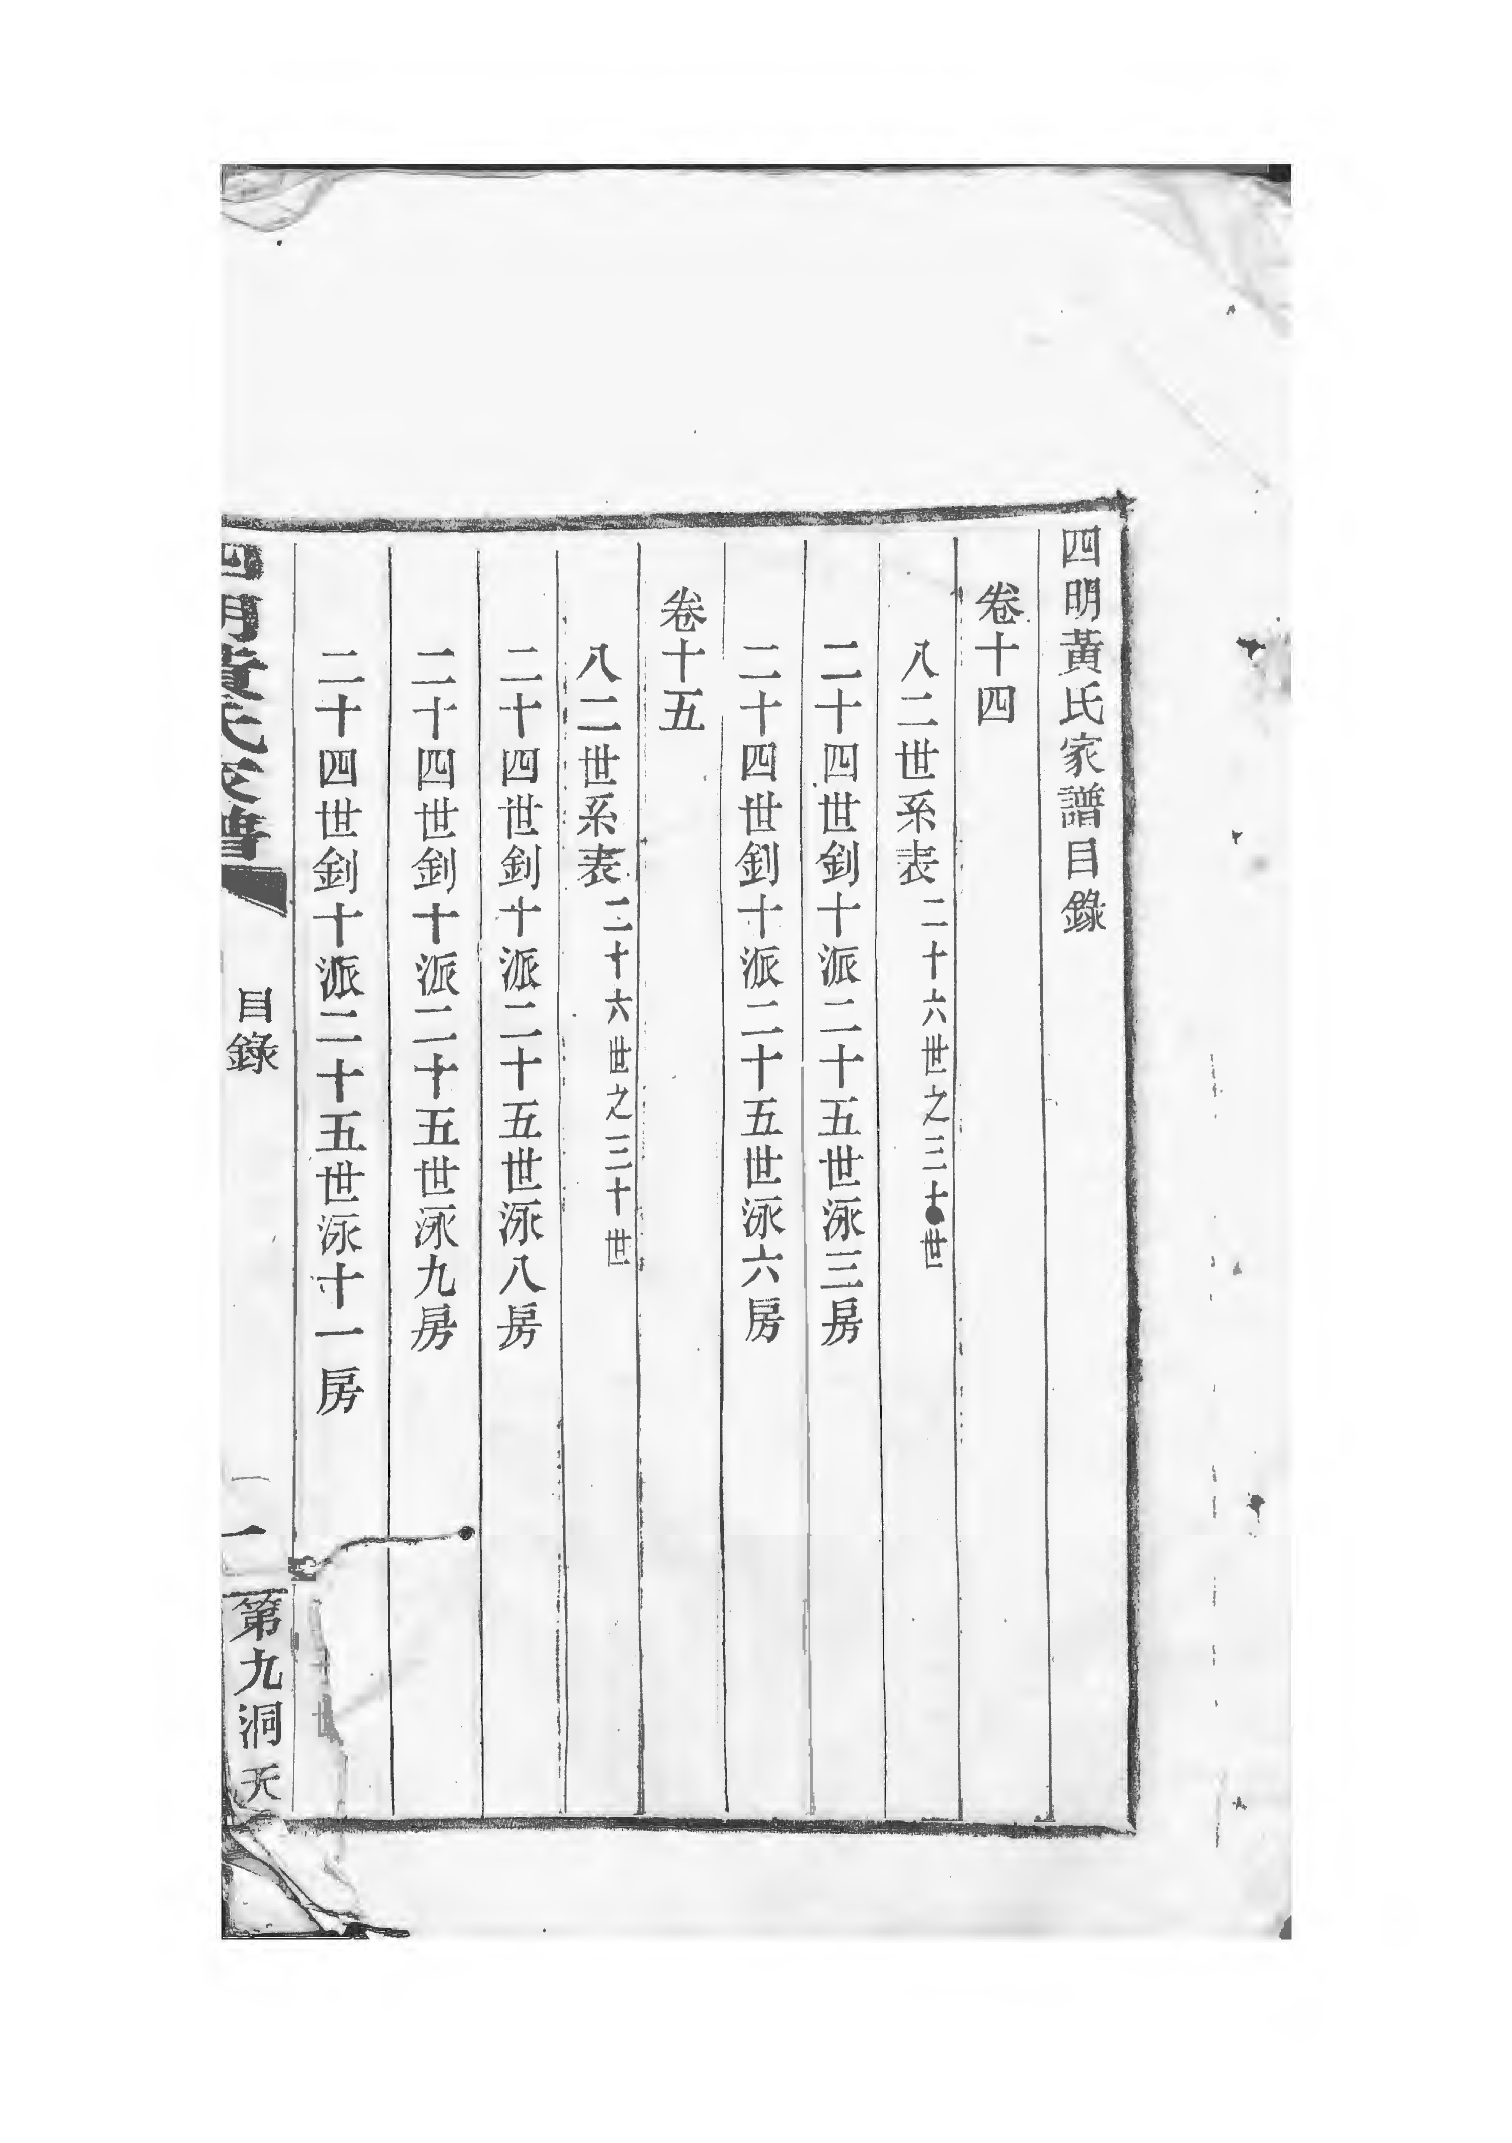 四明黃氏家譜目錄
卷十四
八二世系表 二十六世之三十世
二十四世釗十派二十五世泳三房
二十四世釗十派二十五世泳六房
卷十五
八二世系表 二十六世之三十世
二十四世釗十派二十五世泳八房
二十四世釗十派二十五世泳九房
二十四世釗十派二十五世泳十一房
四明黃氏家譜
目錄
一
第九洞天